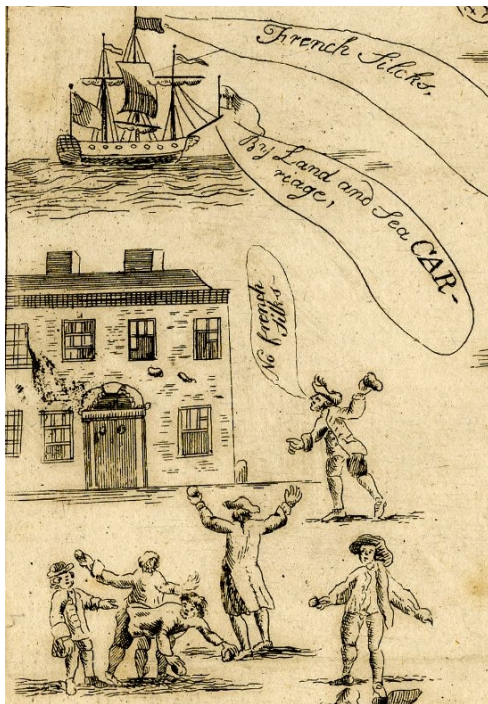 French Silcks,
By Land and Sea CAR-
riage,
No french
Silks-